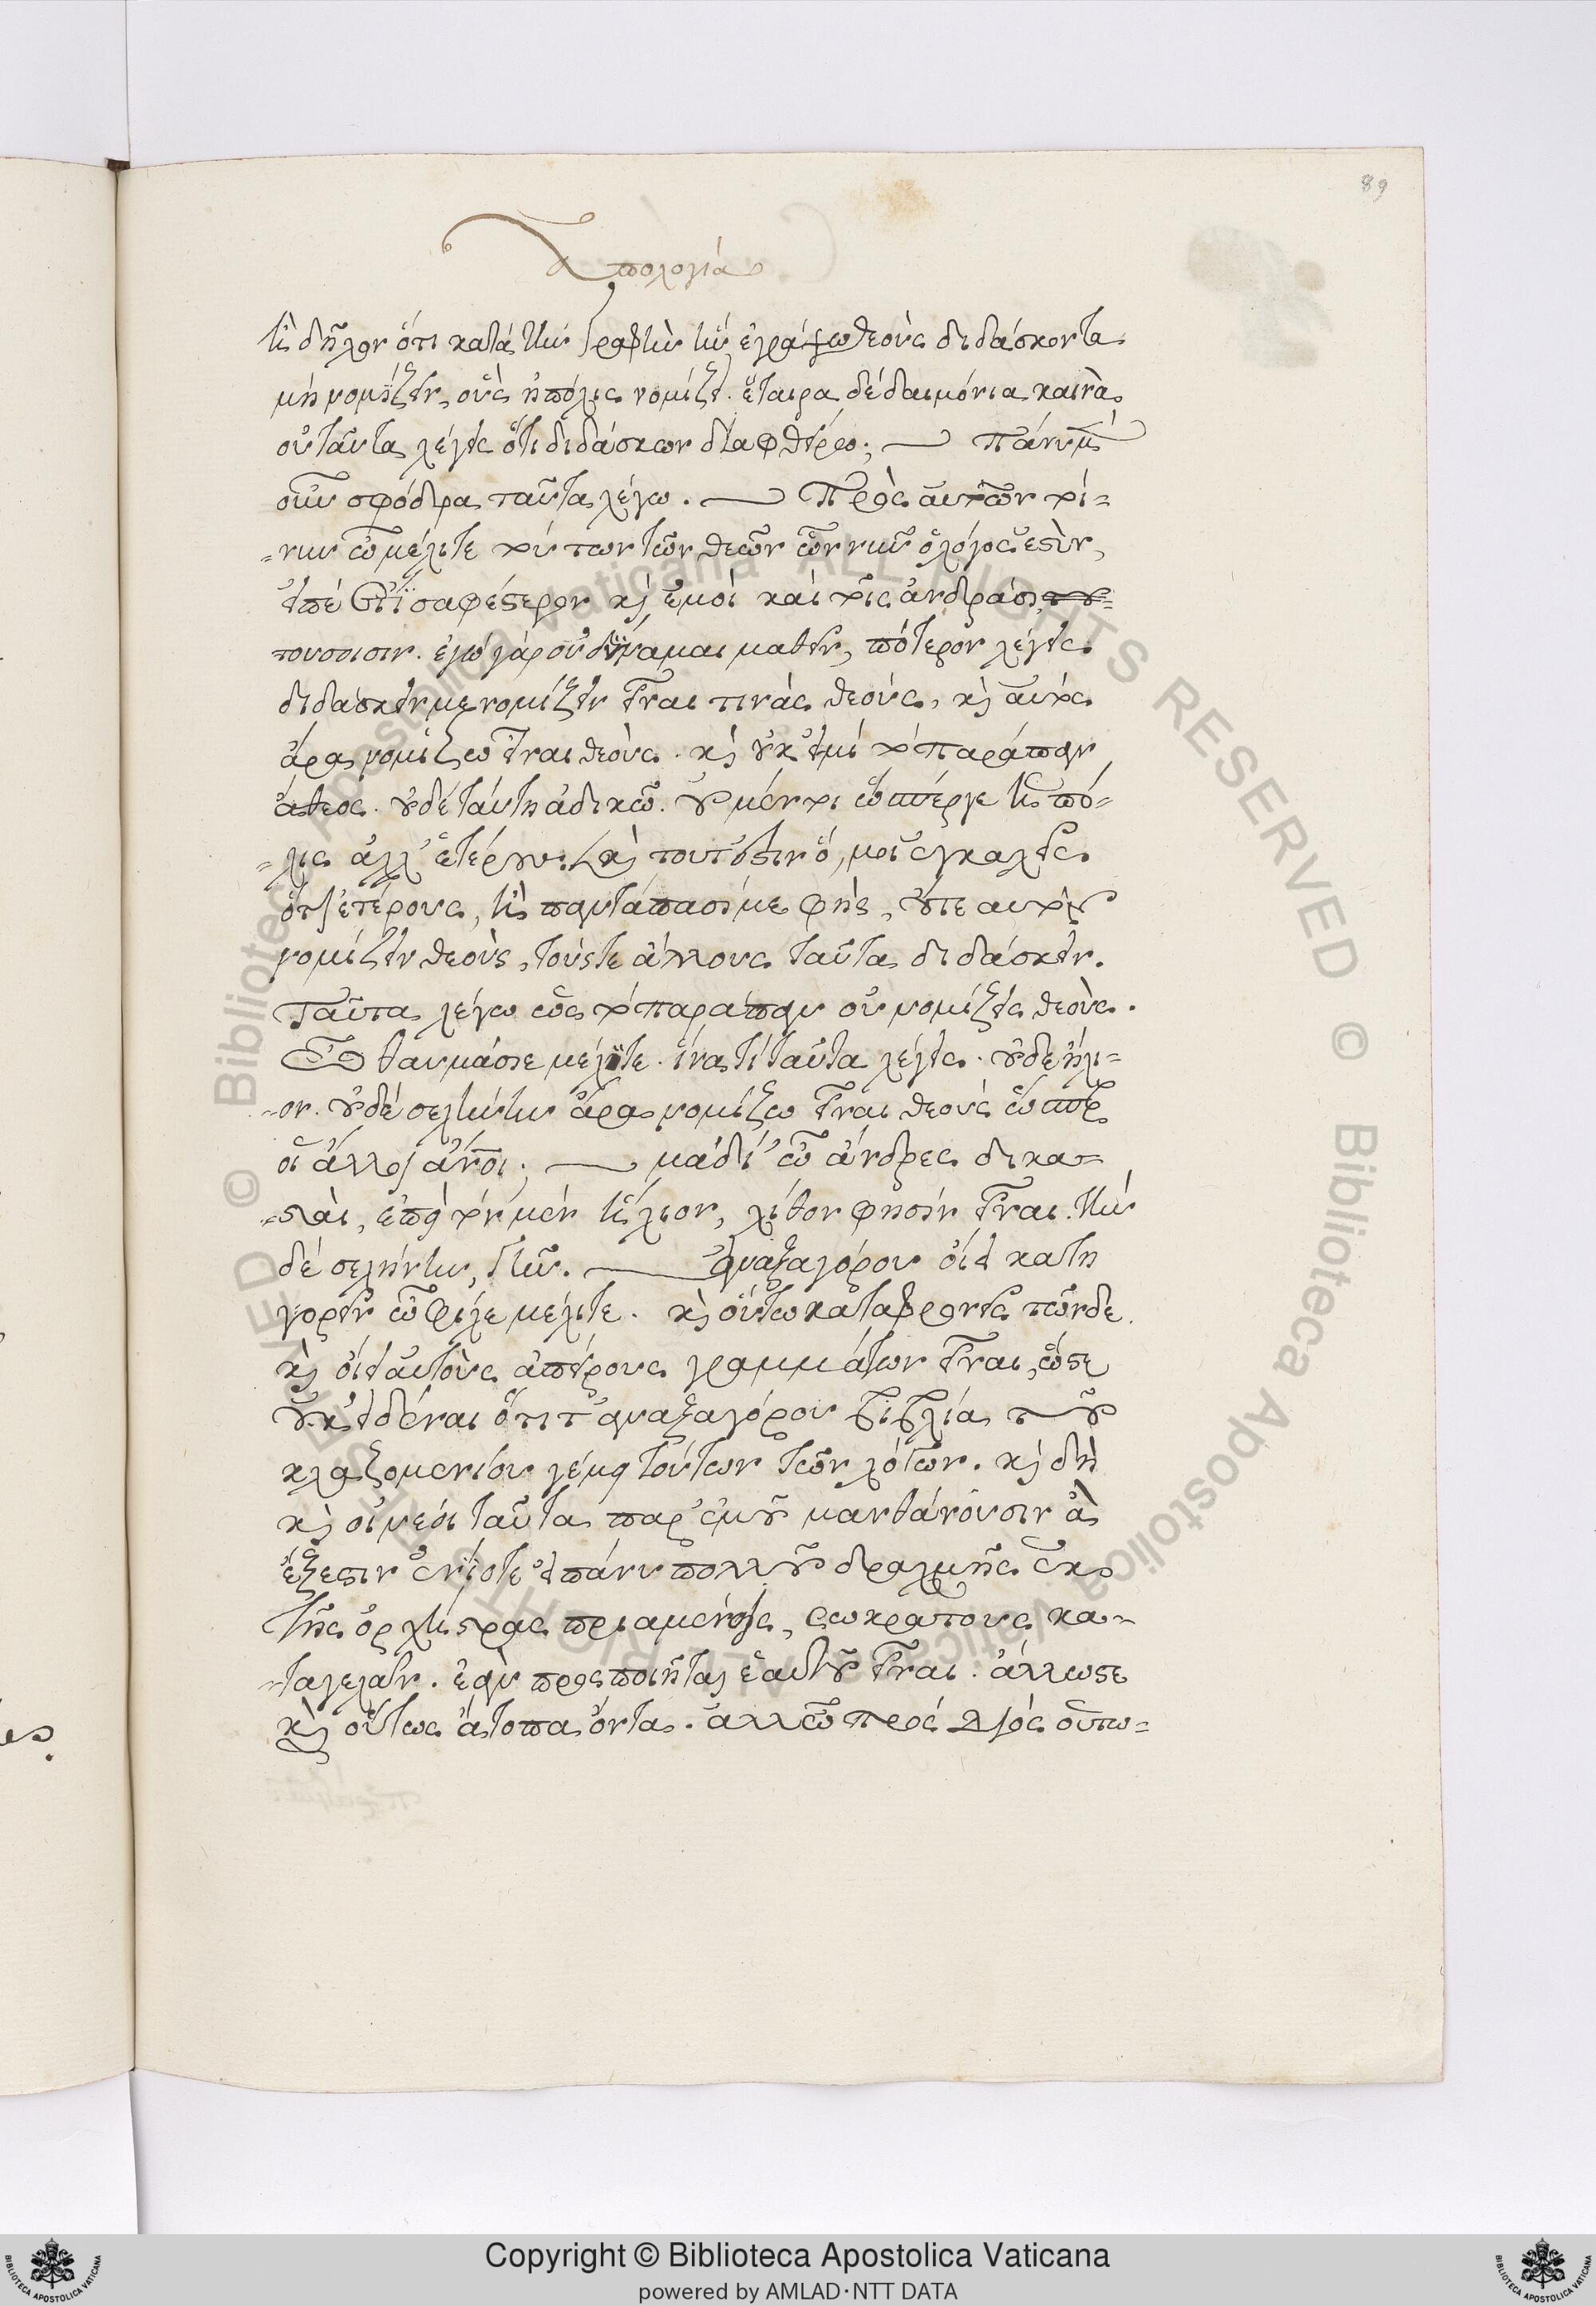 89
Ἀπολογία
ἢ δῆλον ὅτι κατὰ τὴν γραφὴν ἣν ἐγράψω θεοὺς διδάσκοντα
μὴ νομίζειν, οὓς ἡ πόλις νομίζει. ἕταιρα δὲ δαιμόνια καινὰ
οὐ ταῦτα λέγεις ὅτι διδάσκων διαφθείρω; — Πάνυ μὲν
οὖν σφόδρα ταῦτα λέγω. — Πρὸς αὐτῶν τοί-
-νυν ὦ μέλιτε τούτων τῶν θεῶν ὧν νῦν ὁ λόγος ἐστὶν,
εἰπὲ ἔτι σαφέστερον καὶ ἐμοὶ καὶ τοῖς ἀνδράσι του-
τουσοισιν. ἐγὼ γὰρ οὐ δύναμαι μαθεῖν, πότερον λέγεις
διδάσκειν με νομίζειν εἶναι τινὰς θεούς, καὶ αὐτὸς
ἄρα νομίζω εἶναι θεούς. καὶ οὐκ εἰμὶ τὸ παράπαν
ἄθεος. οὐδὲ ταύτῃ ἀδικῶ. οὐ μέντοι οὕσπέργε ἡ πό-
-λις ἀλλ' ἑτέρους. καὶ τουτ' ἔστιν ὅ, μοι ἐγκαλεῖς
ὅτι ἑτέρους, ἢ παντάπασί με φῂς, οὔτε αὐτὸν
νομίζειν θεοὺς, τούς τε ἄλλους ταῦτα διδάσκειν.
Ταῦτα λέγω ὡς τὸ παράπαν οὐ νομίζεις θεούς.
Ὦ θαυμάσιε μέλιτε. ἵνα τί ταῦτα λέγεις. οὐδὲ ἥλι-
-ον. οὐδὲ σελήνην ἄρα νομίζω εἶναι θεοὺς ὥσπερ
οἱ ἄλλοι ἄνοι; — μὰ δί' ὦ ἄνδρες δικα-
-σταὶ, ἐπεὶ τὸν μὲν ἥλιον, λίθον φησὶν εἶναι. τὴν
δὲ σελήνην, γῆν. — Ἀναξαγόρου οἴει κατη
γορεῖν ὦ φίλε μέλιτε. καὶ οὕτω καταφρονεῖς τῶνδε.
καὶ οἴει αὐτοὺς ἀπείρους γραμμάτων εἶναι, ὥστε
οὐκ εἰδέναι ὅτι τ' ἀναξαγόρου βιβλία τοῦ
κλαζομενίου γέμει τούτων τῶν λόγων. καὶ δὴ
καὶ οἱ νέοι ταῦτα παρ' ἐμοῦ μανθάνουσιν ἃ
ἔξεστιν ἐνίοτε εἰ πάνυ πολλοῦ δραχμῆς ἐκ
τῆς ὀρχήστρας πριαμένοις, σωκράτους κα-
-ταγελᾶν. ἐὰν προσποιῆται ἑαυτοῦ εἶναι. ἄλλωστε
καὶ οὕτως ἄτοπα ὄντα. ἀλλ' ὦ πρὸς Διὸς οὑτω-
Copyright © Biblioteca Apostolica Vaticana
powered by AMLAD·NTT DATA